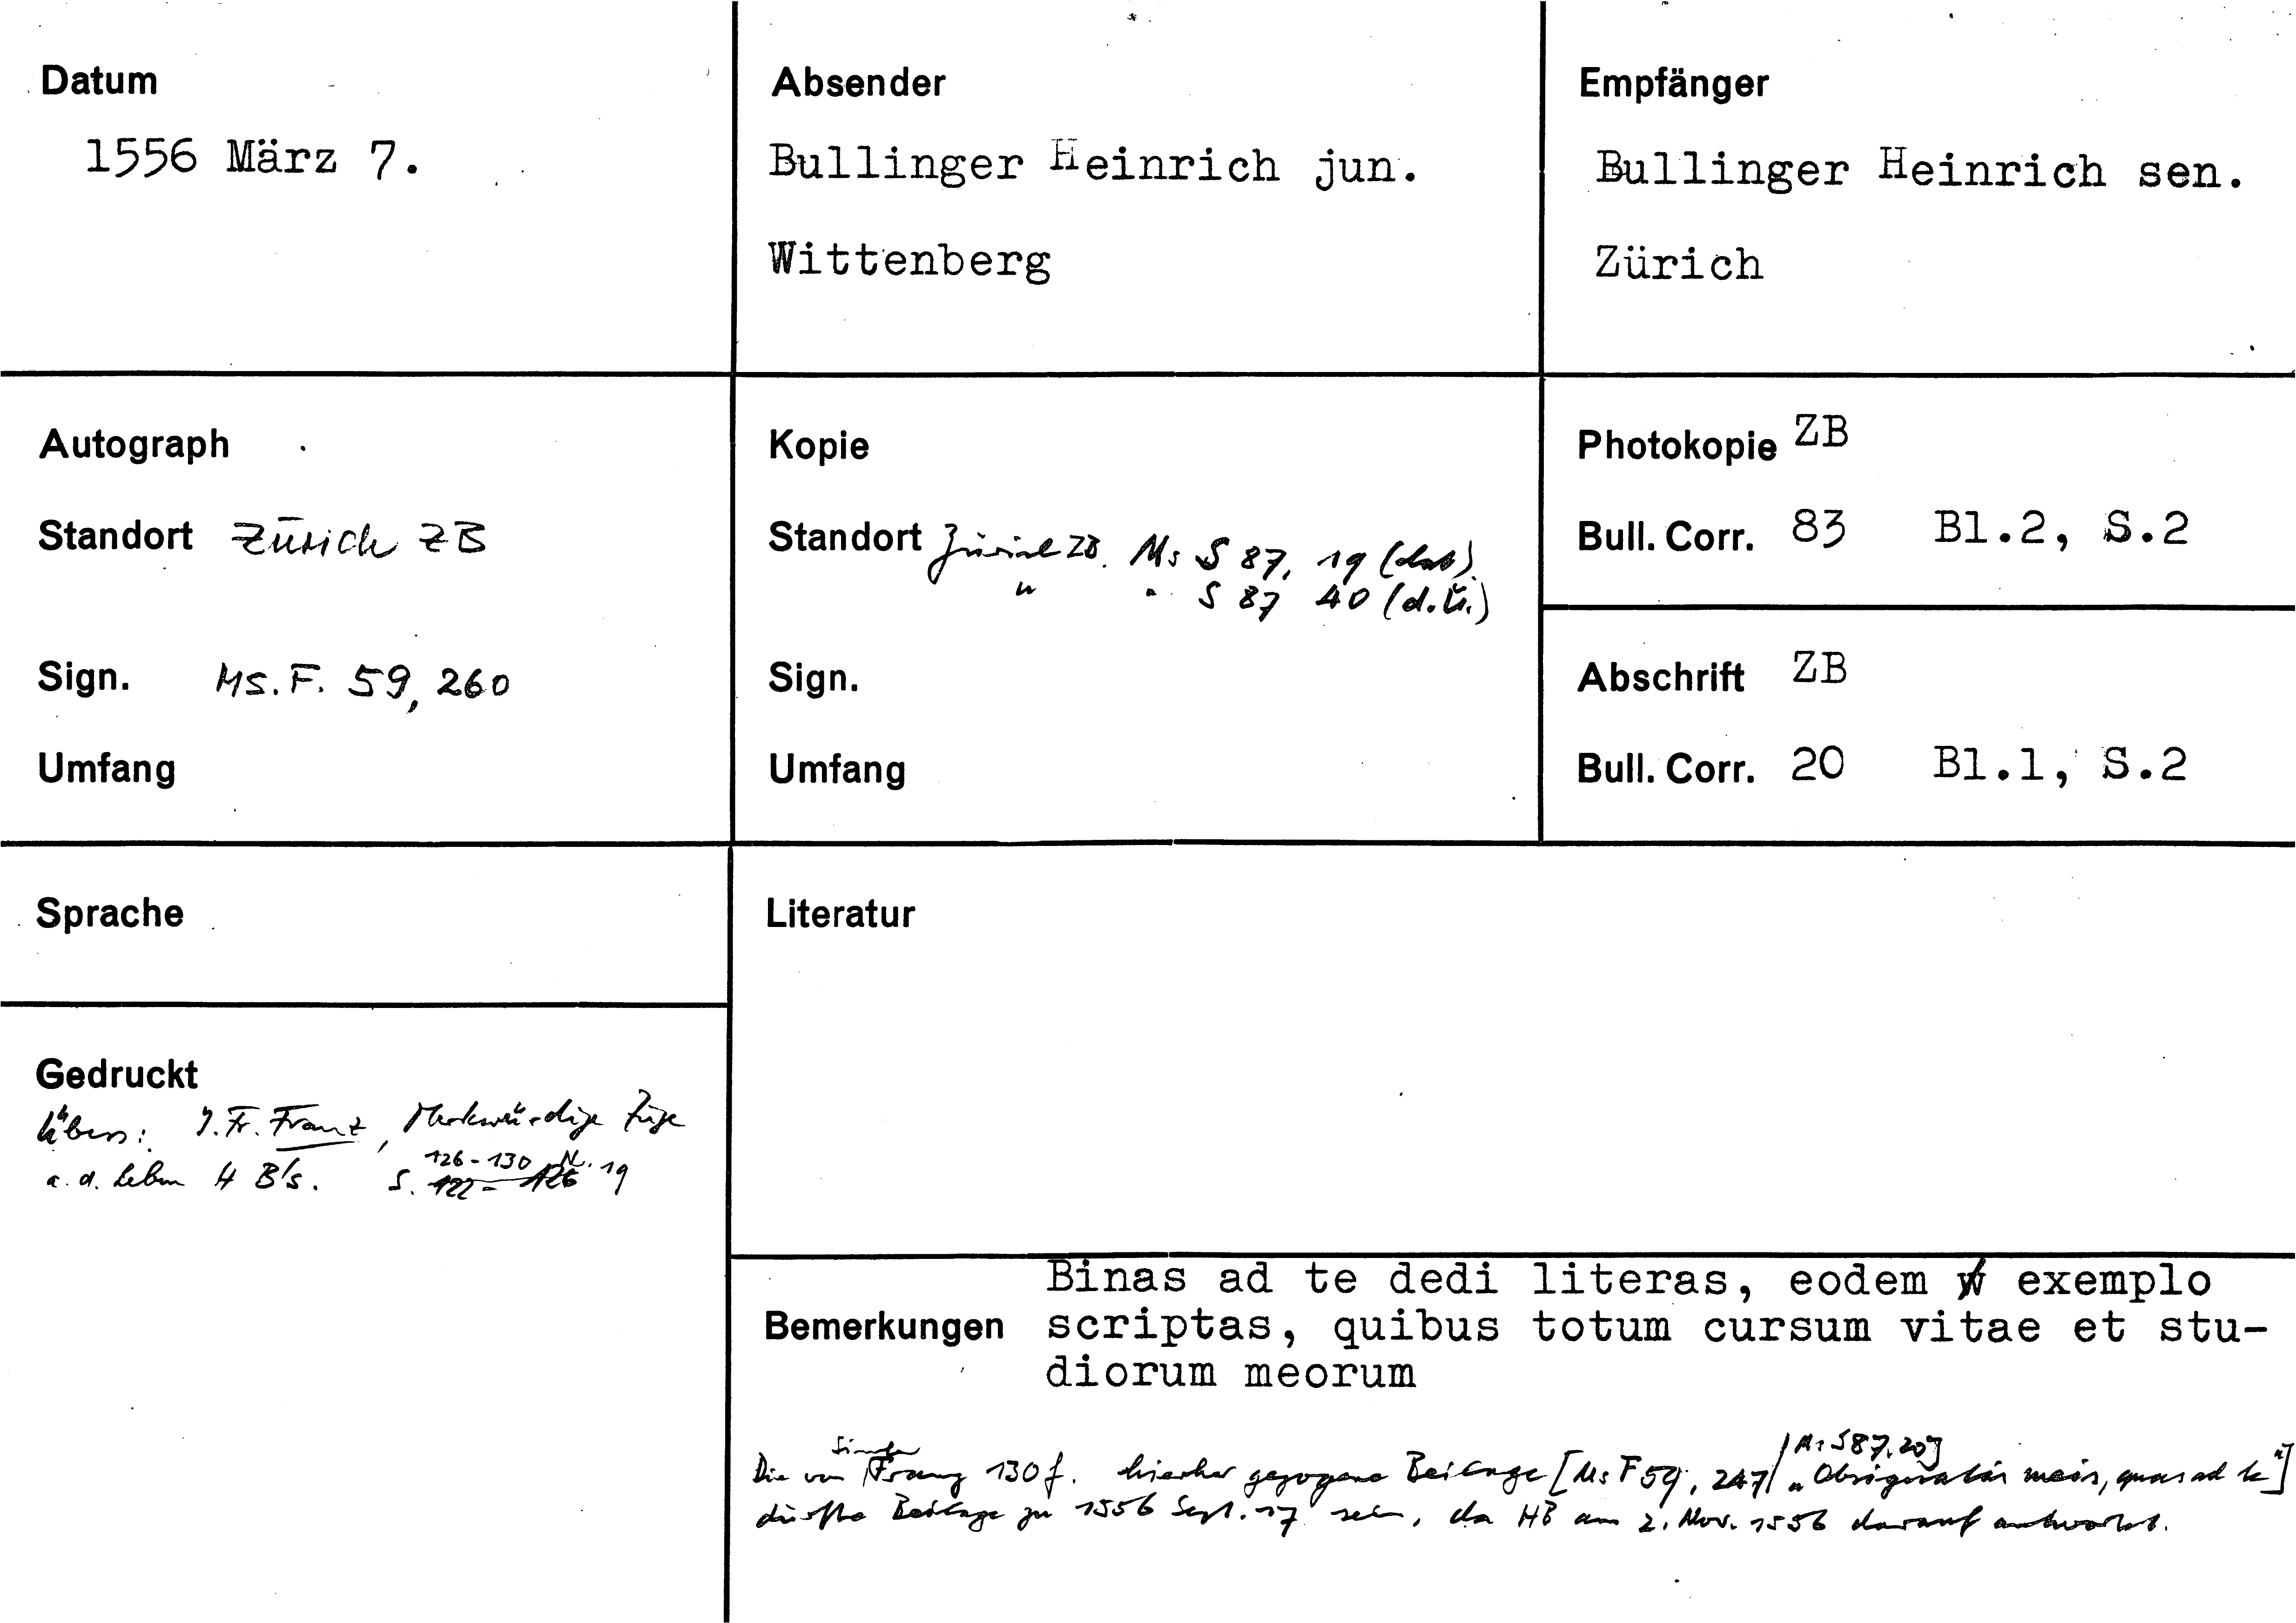 Datum
1556 März 7.
Absender
Bullinger Heinrich jun.
Wittenberg
Empfänger
Bullinger Heinrich sen.
Zürich
Autograph
Standort Zürich ZB
Sign. Ms. F. 59, 260
Umfang
Kopie
Standort Zürich ZB. Ms S 87, 19 (lat)
" " S 87 40 (d.Ü.)
Sign.
Umfang
Photokopie ZB
Bull. Corr. 83 Bl.2, S.2
Abschrift ZB
Bull. Corr. 20 Bl.1, S.2
Sprache
Gedruckt
Übers: J. Fr. Franz, Merkwürdige Züge
a. d. Leben H B's. S. 122-126 126-130 N. 19
Literatur
Bemerkungen
Binas ad te dedi literas, eodem exemplo
scriptas, quibus totum cursum vitae et stu-
diorum meorum
Die von Simler / Franz 130 f. hierher gezogene Beilage [Ms F 59, 247 / Ms S 87, 20] "Obsignatis meis, quas ad te"]
dürfte Beilage zu 1556 Sept. 17 sein, da HB am 2. Nov. 1556 darauf antwortet.